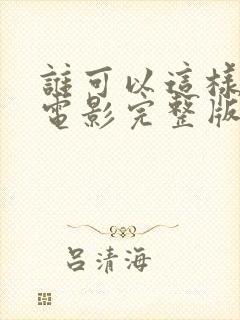 誰可以這樣
電影完整版
呂清海